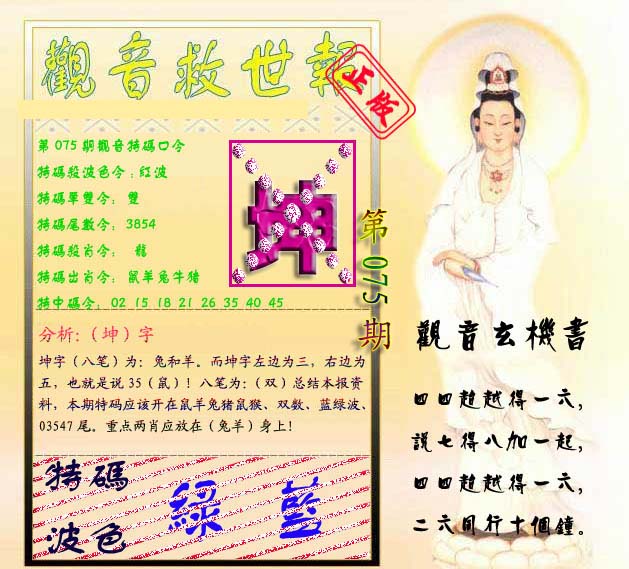 觀音救世報
正版
第075期觀音特碼口令
特碼殺波色令：紅波
特碼單雙令：雙
特碼尾數令：3854
特碼殺肖令：龍
特碼出肖令：鼠羊兔牛猪
特中碼令：02 15 18 21 26 35 40 45
坤
第075期
分析：（坤）字
坤字（八笔）为：兔和羊。而坤字左边为三，右边为
五，也就是说35（鼠）！八笔为：（双）总结本报资
料，本期特码应该开在鼠羊兔猪鼠猴、双数、蓝绿波、
03547尾。重点两肖应放在（兔羊）身上！
特碼
波色
綠 藍
觀音玄機書
四四趙越得一六，
說七得八加一起，
四四趙越得一六，
二六同行十個鐘。